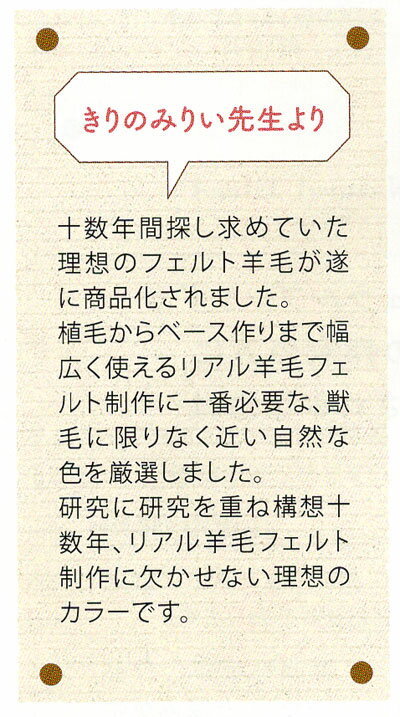 きりのみりい先生より
十数年間探し求めていた
理想のフェルト羊毛が遂
に商品化されました。
植毛からベース作りまで幅
広く使えるリアル羊毛フェ
ルト制作に一番必要な、獣
毛に限りなく近い自然な
色を厳選しました。
研究に研究を重ね構想十
数年、リアル羊毛フェルト
制作に欠かせない理想の
カラーです。